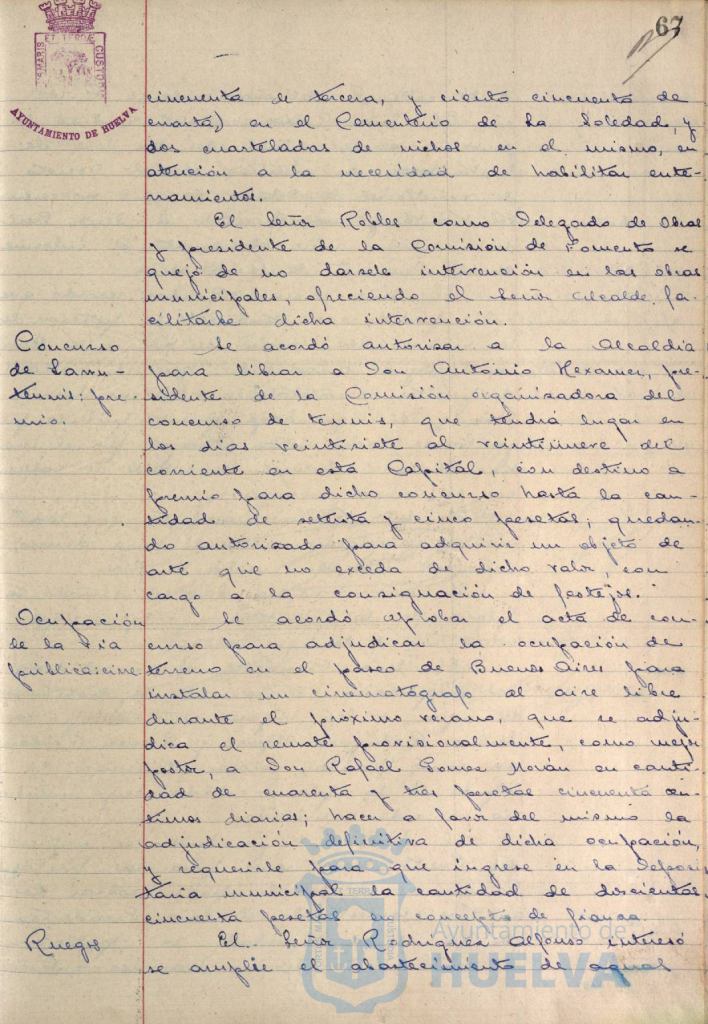 67
AYUNTAMIENTO DE HUELVA
cincuenta de tercera, y ciento cincuenta de
cuarta) en el Cementerio de la Soledad, y
dos cuarteladas de nichos en el mismo, en
atención a la necesidad de habilitar ente-
rramientos.
El Señor Robles como Delegado de Obras
y presidente de la Comisión de Fomento se
quejó de no darsele intervención en las obras
municipales, ofreciendo el Señor Alcalde fa-
cilitarle dicha intervención.
Concurso
de Lawn-
tennis: pre-
mio.
Se acordó autorizar a la Alcaldía
para librar a Don Antonio Hexamer, pre-
sidente de la Comisión organizadora del
concurso de tennis, que tendrá lugar en
los días veintisiete al veintinueve del
corriente en esta Capital, con destino a
premio para dicho concurso hasta la can-
tidad de setenta y cinco pesetas; quedan-
do autorizado para adquirir un objeto de
arte que no exceda de dicho valor, con
cargo a la consignación de festejos.
Ocupación
de la vía
pública: cine
Se acordó aprobar el acta de con-
curso para adjudicar la ocupación de
terreno en el paseo de Buenos Aires para
instalar un cinematógrafo al aire libre
durante el próximo verano, que se adju-
dica el remate provisionalmente, como mejor
postor, a Don Rafael Gomez Morán en canti-
dad de cuarenta y tres pesetas cincuenta cén-
timos diarias; hacer a favor del mismo la
adjudicación definitiva de dicha ocupación,
y requerirle para que ingrese en la Deposi-
taría municipal la cantidad de doscientas
cincuenta pesetas en concepto de fianza.
Ruegos
El Señor Rodriguez Alfonso interesó
se amplíe el abastecimiento de aguas
Ayuntamiento de
HUELVA